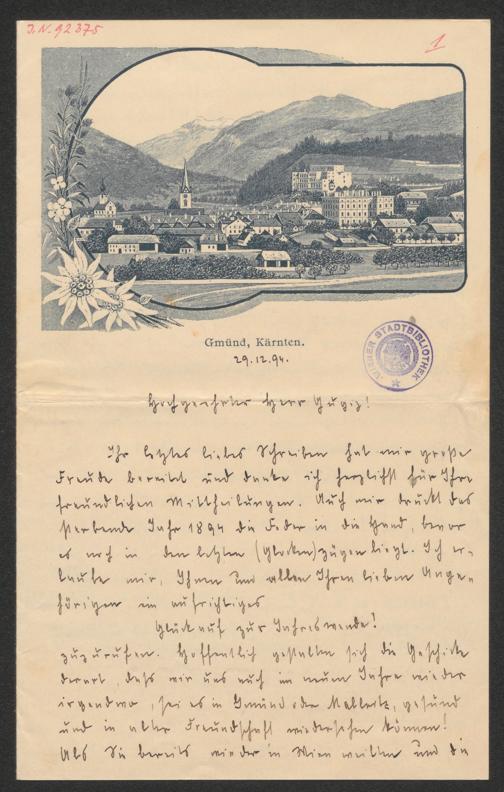 J.N. 92375
1
Gmünd, Kärnten.
29.12.94.
WIENER STADTBIBLIOTHEK
Hochgeehrter Herr Gugiz!
Ihr letztes liebes Schreiben hat mir große
Freude bereitet und danke ich herzlichst für Ihre
freundlichen Mittheilungen. Auch mir drückt das
sterbende Jahr 1894 die Feder in die Hand, bevor
es noch in den letzten (Glocken)zügen liegt. Ich er-
laube mir, Ihnen und allen Ihren lieben Ange-
hörigen ein aufrichtiges
Glück auf zur Jahreswende!
zuzurufen. Hoffentlich gestalten sich die Geschicke
derart, daß wir uns auch im neuen Jahre wieder
irgendwo, sei es in Gmünd oder Mallnitz, gesund
und in alter Freundschaft wiedersehen können!
Als Sie bereits wieder in Wien weilten und die